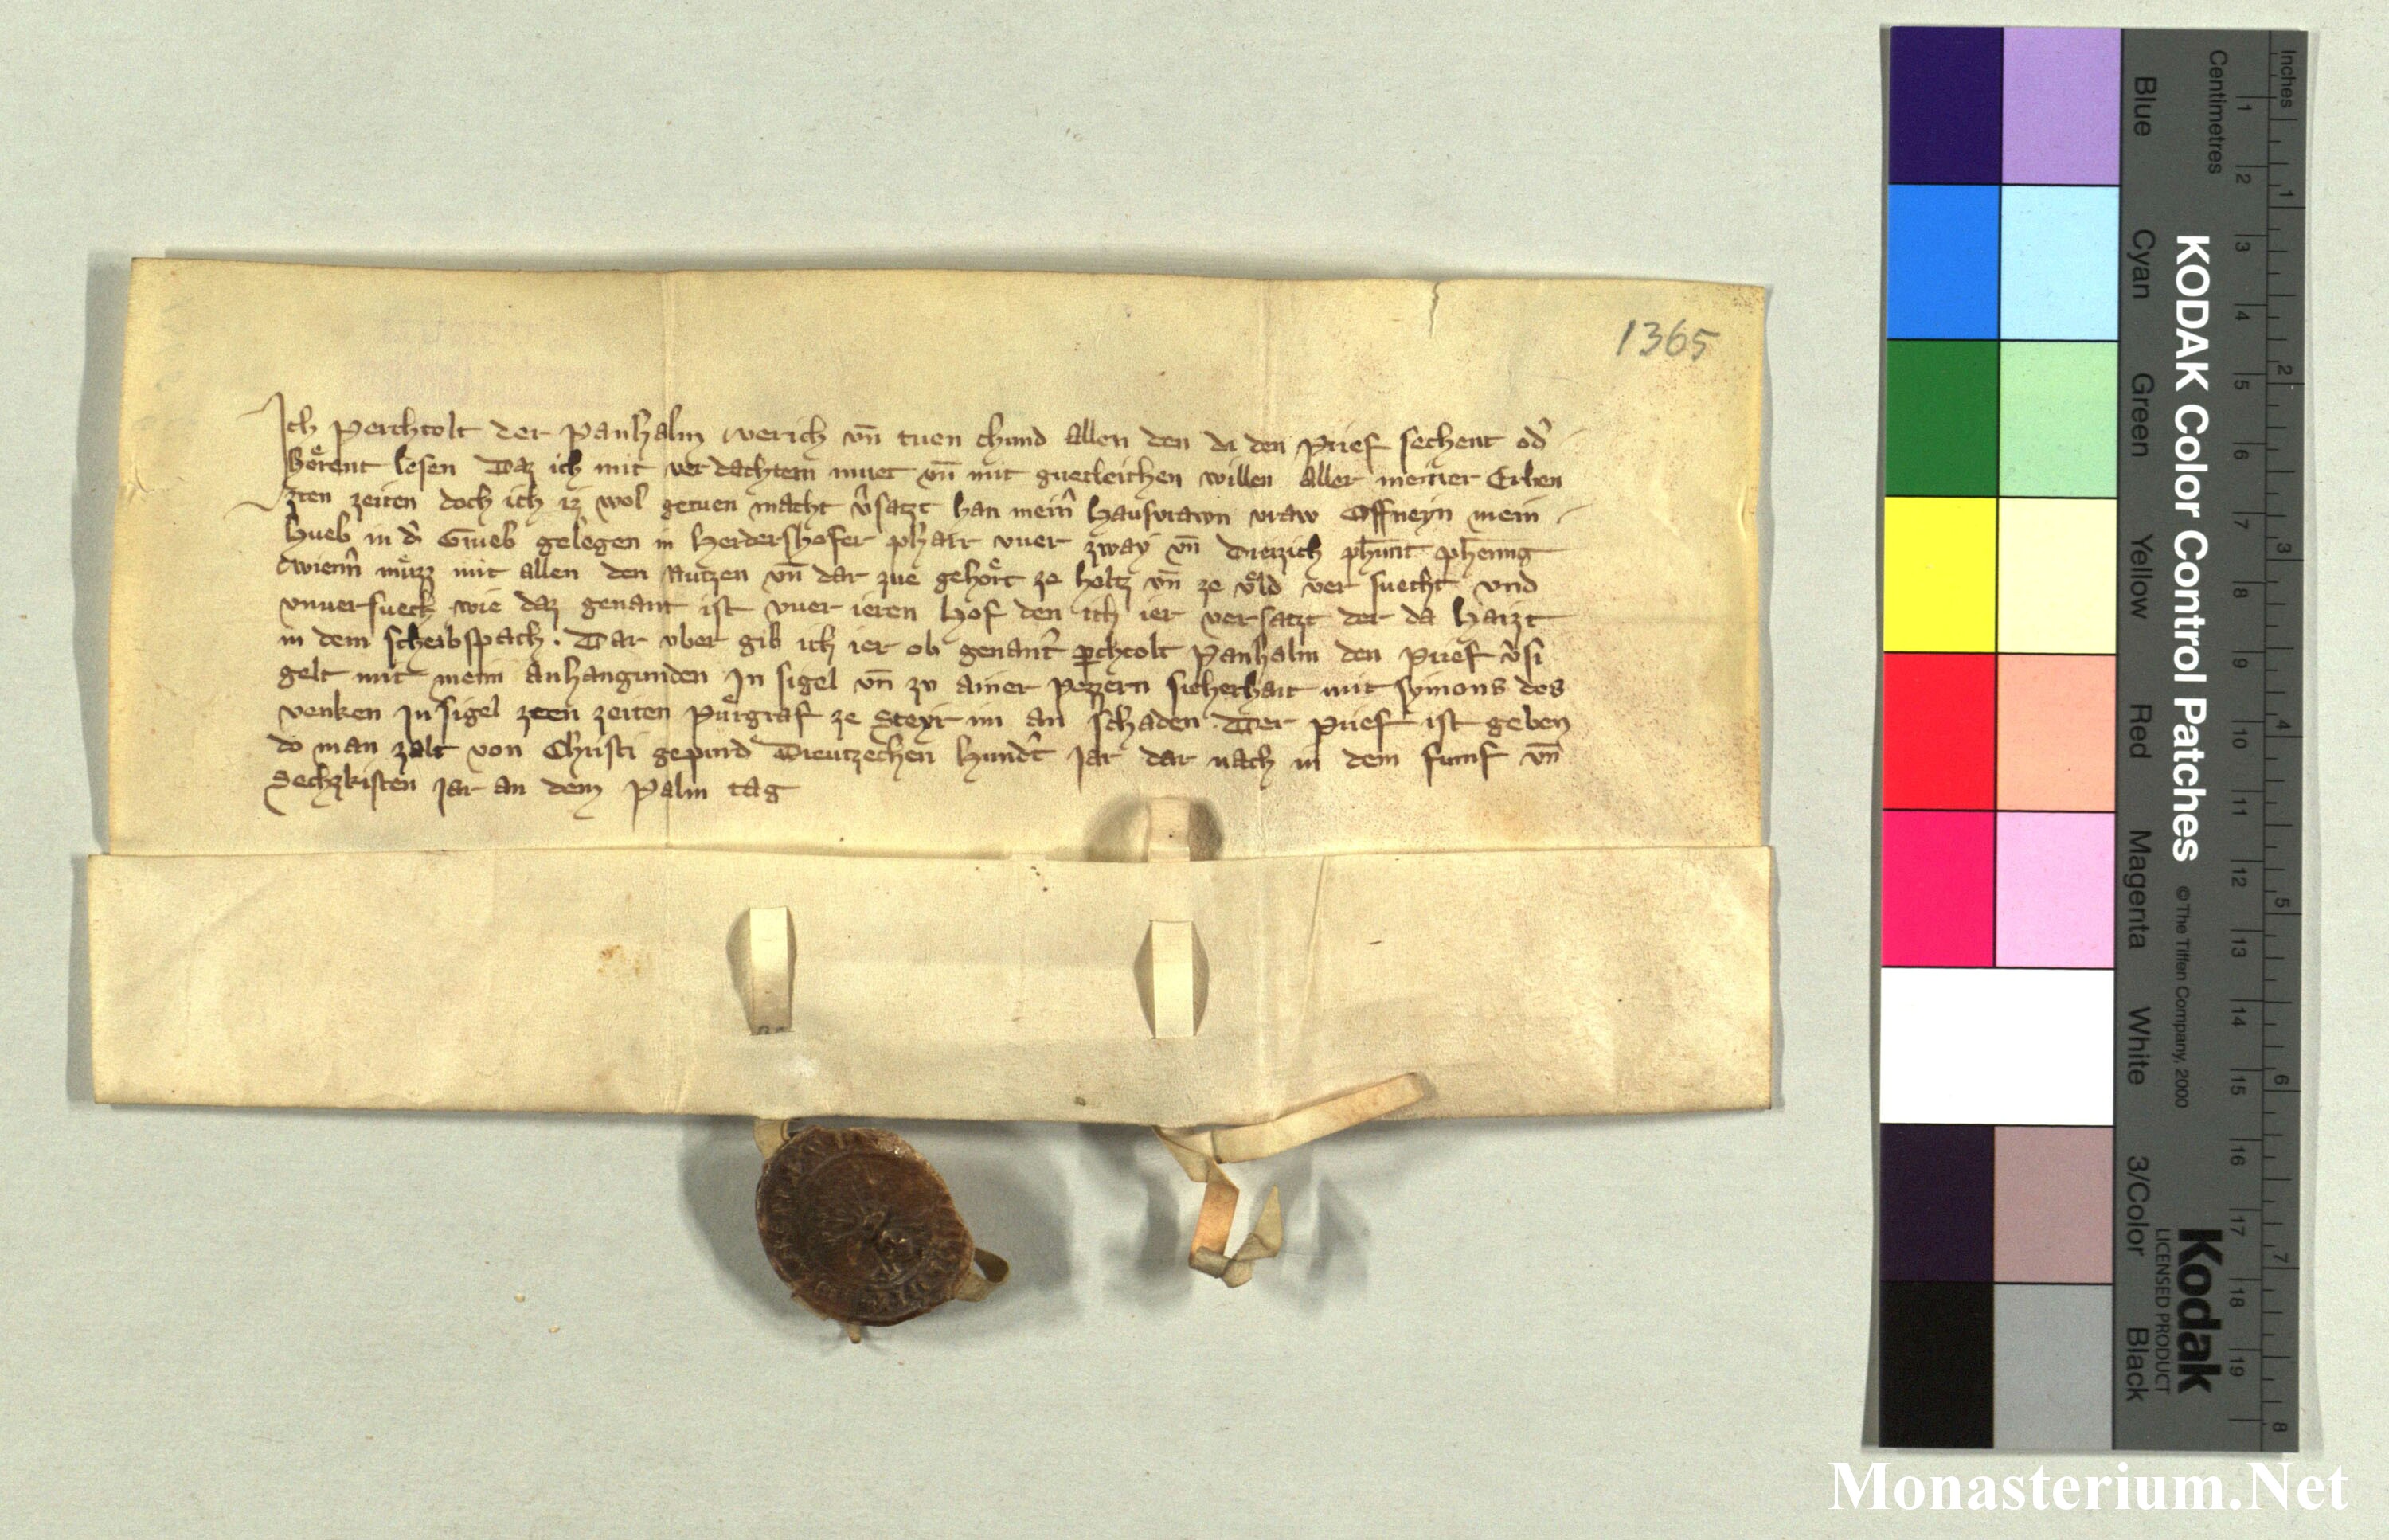 1365
Ich Perchtolt der Panhalm verich vn̄ tuen chund allen den di den prief sechent od̄
hoͤrent lesen Daz ich mit verdachtem muet vn̄ mit guetleichen willen aller meiner Erben
zten zeiten doch ich iz wol getuen macht v̄satzt han mein̄ hausvrawn vraw Offneyn mein
hueb in d̄ Grueb gelegen in herdershofer pharr vuer zway vn̄ Dreizich phunt phenning
wienn̄ muͤzz mit allen den Nutzen vn̄ dar zue gehoͤrt ze holtz vn̄ ze vͤld ver suecht vnd
vnuersuech wie daz genant ist vuer ieren hof den ich ier versatzt der da haizt
in dem scheibspach. Dar vber gib ich ier ob genant̄ p̱chtolt Panhalm den prief v̄si
gelt mit meim anhangunden In sigel vn̄ zu ainer pezzern sicherhait mit symons des
venken In sigel zten zeiten Puͤrgraf ze Steyr im an schaden Der prief ist geben
do man zalt von Christi gepurd Dreutzechen hund̄t Jar dar nach in dem fumf vn̄
Sechzkisten Jar an dem Palm tag
Inches
Centimetres
KODAK Color Control Patches
© The Tiffen Company, 2000
Kodak
LICENSED PRODUCT
Blue
Cyan
Green
Yellow
Red
Magenta
White
3/Color
Black
1 2 3 4 5 6 7 8 9 10 11 12 13 14 15 16 17 18 19
1 2 3 4 5 6 7 8
Monasterium.Net